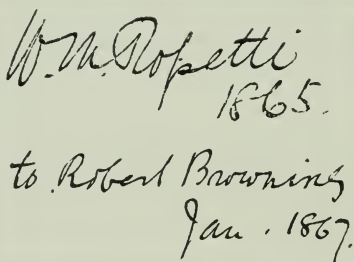 W. M. Rossetti
1865.
to Robert Browning
Jan. 1867.